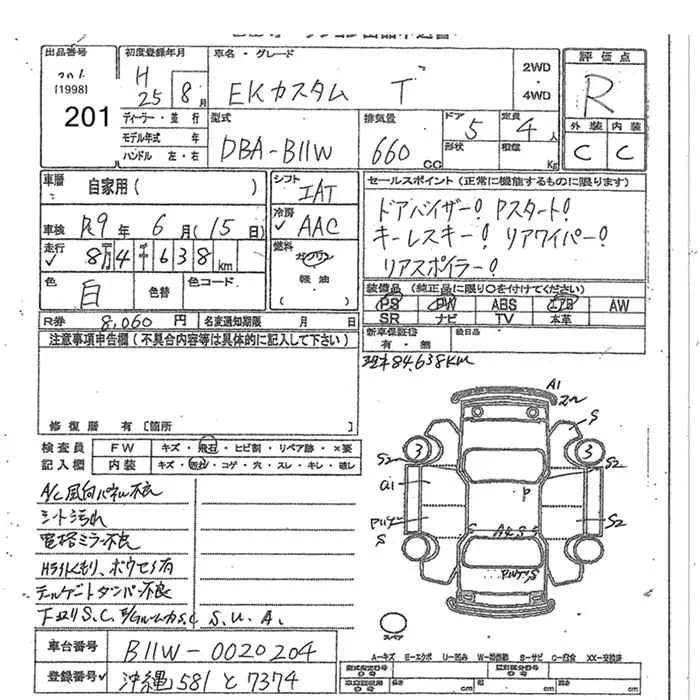 出品番号
[1998]
201
初度登録年月
H 25 8月
車名・グレード
EKカスタム T
2WD
・
4WD
評価点
R
外装 内装
C C
ディーラー・並行
モデル年式 年
ハンドル 左・右
型式
DBA-B11W
排気量
660 CC
ドア 5
形状
定員 4人
積載 Kg
車歴
自家用( )
車検 R9年 6月(15日)
走行 8万4千638km
色 白 色替
色コード
シフト
IAT
冷房
AAC
燃料
ガソリン
軽油
セールスポイント(正常に機能するものに限ります)
ドアバイザー! Pスタート!
キーレスキー! リアワイパー!
リアスポイラー!
装備品(純正品に限り○を付けてください)
PS PW ABS エアB AW
SR ナビ TV 本革
新車保証書
有・無
R券 8,060円 名変通知期限 月 日
注意事項申告欄(不具合内容等は具体的に記入して下さい)
修復歴 有[箇所 ]
84,638KM
検査員
記入欄
FW キズ・飛石・ヒビ割・リペア跡・×要
内装 キズ・コゲ・穴・スレ・キレ・破レ
A/C風向パネル不良
シート汚れ
電格ミラー不良
Hライトくもり、ボウセイ有
テールゲートダンパー不良
下回りS.C, E/GルームカS.C S.U.A.
A1
2ハ
S
3
3
S2
S2
a1
P
S
S2
S
スペア
A-キズ E-エクボ U-凹み W-補修跡 S-サビ C-腐食 XX-交換済
車台番号
B11W-0020204
登録番号
沖縄 581 と 7374
長さ cm 幅 cm 高さ cm